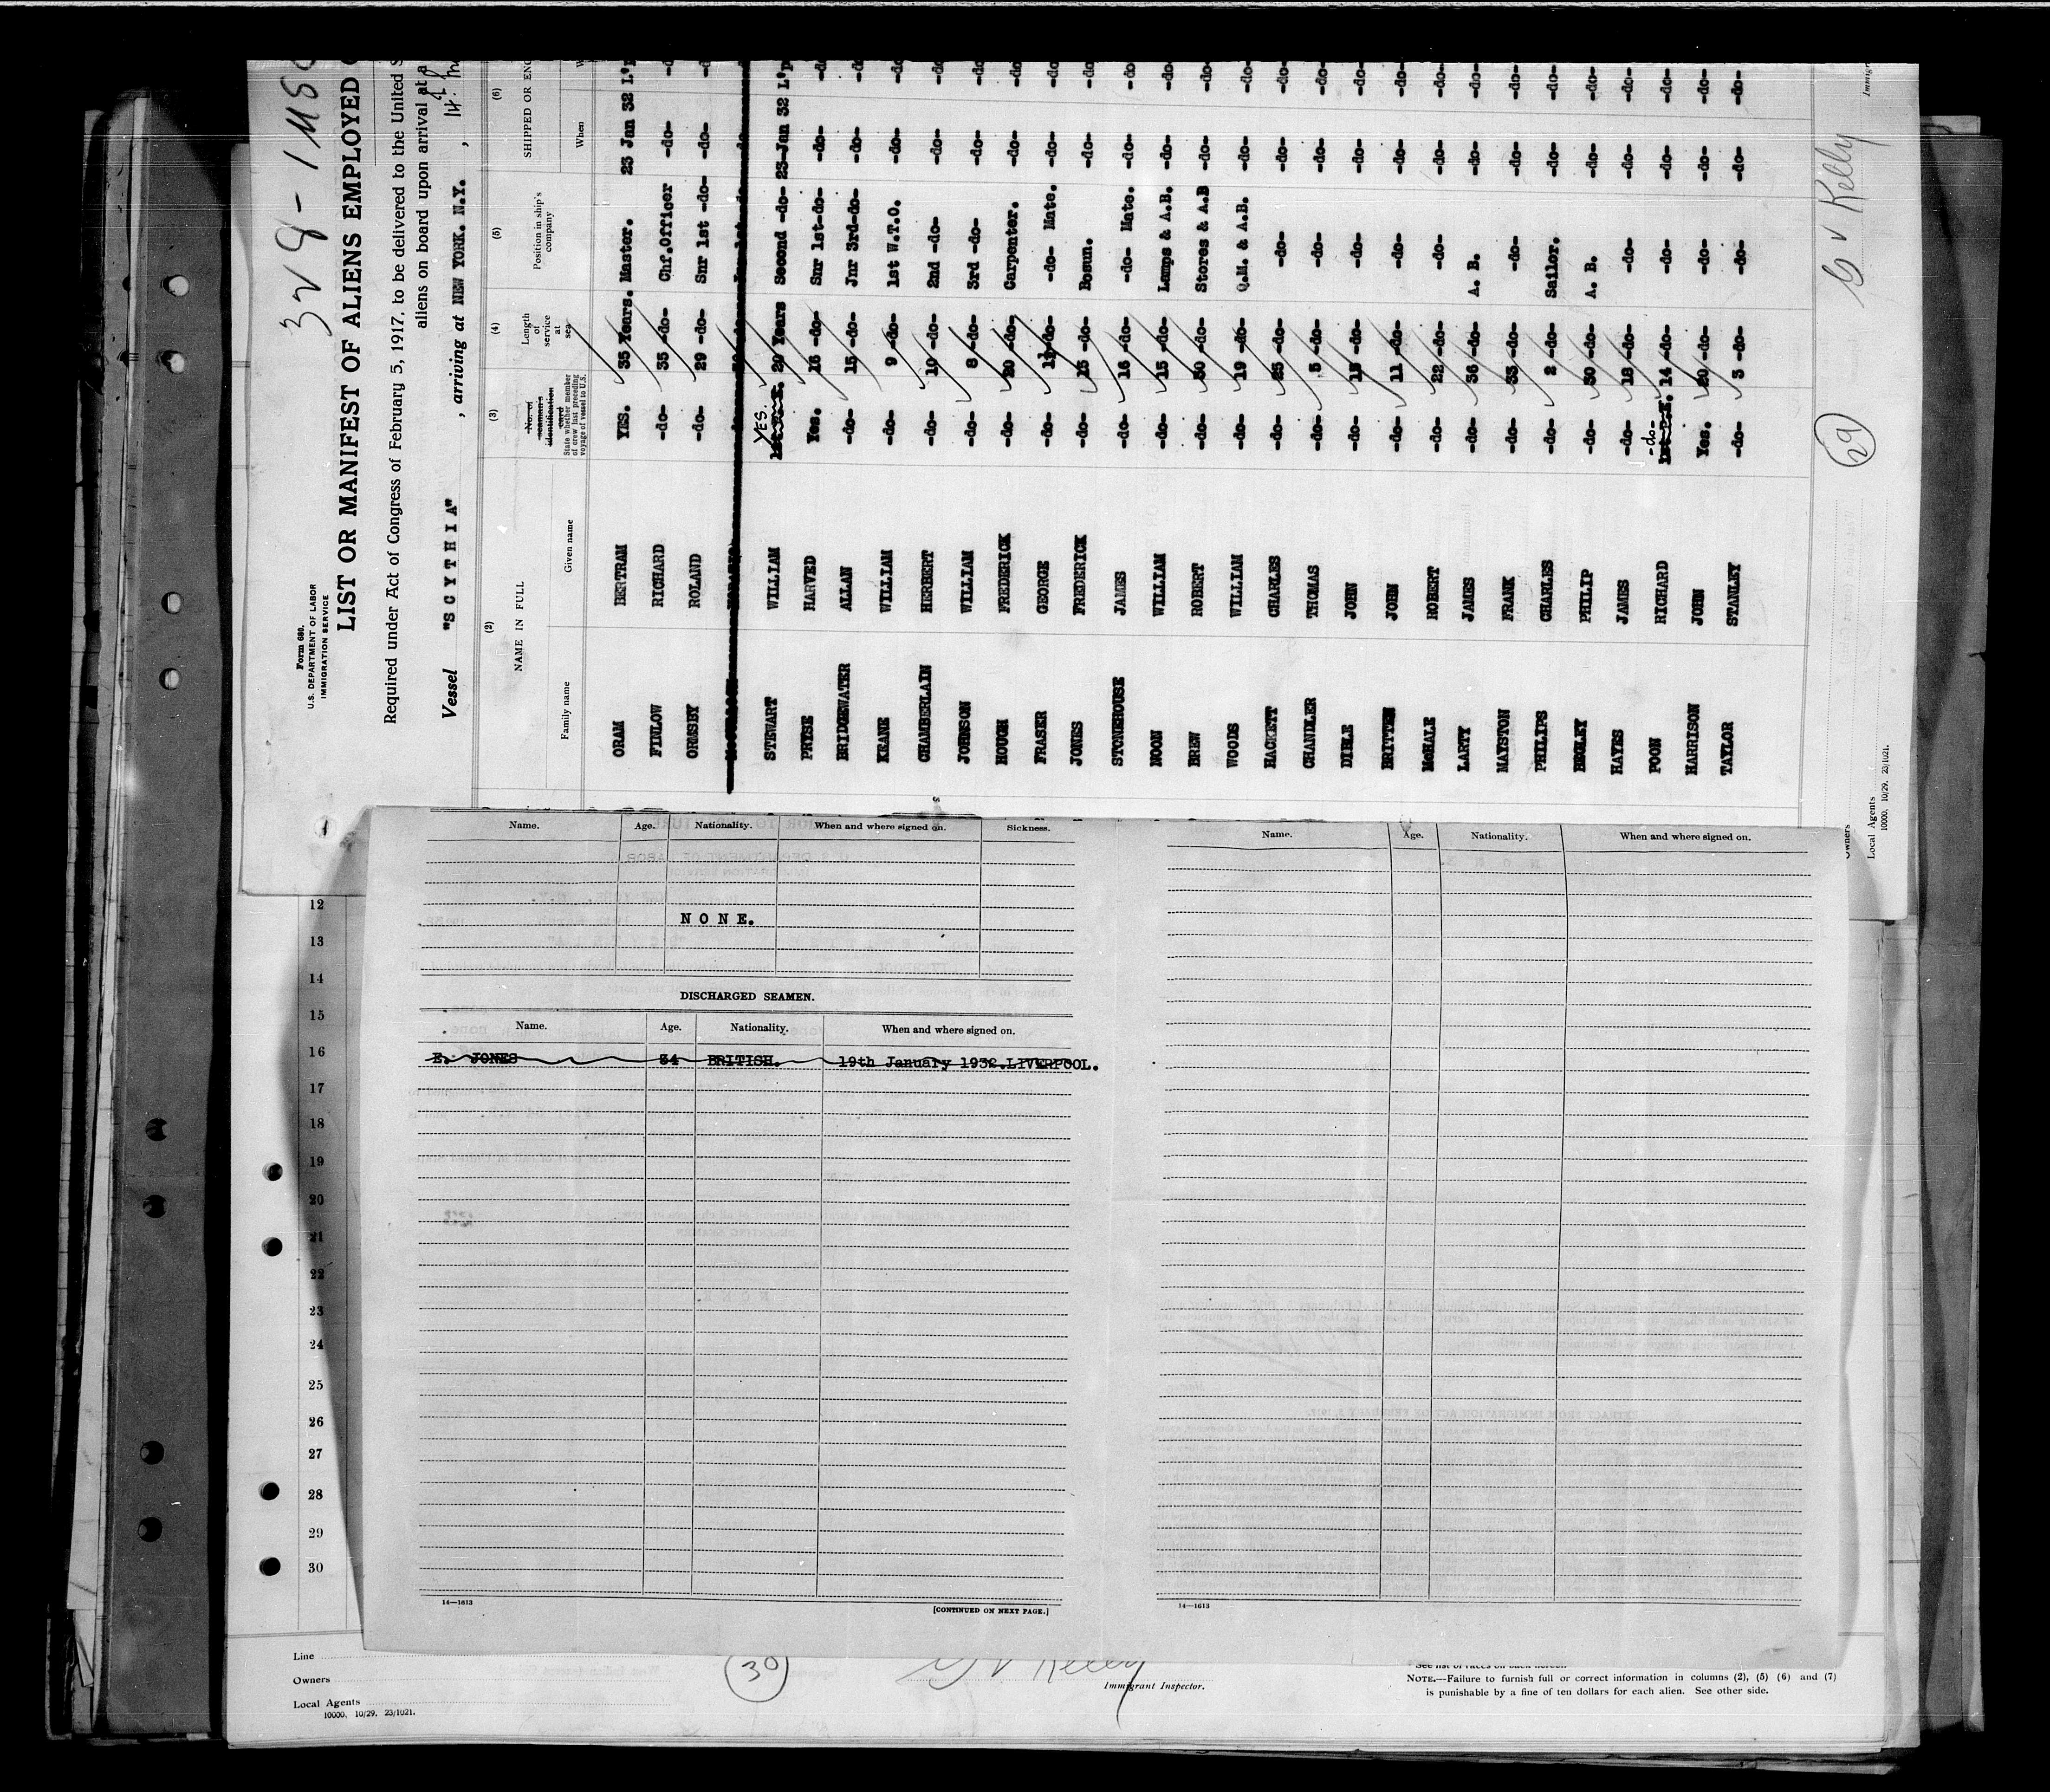 328-
Form 680.
U.S. DEPARTMENT OF LABOR
IMMIGRATION SERVICE
LIST OR MANIFEST OF ALIENS EMPLOYED
Required under Act of Congress of February 5, 1917, to be delivered to the United
aliens on board upon arrival at a
Vessel "SCYTHIA" , arriving at NEW YORK. N.Y. ,
(2) (3) (4) (5) (6)
NAME IN FULL
Family name Given name
No. of seaman's identification card
State whether member of crew last preceding voyage of vessel to U.S.
Length of service at sea
Position in ship's company
SHIPPED OR
When
ORAM BERTRAM YES. 35 Years. Master. 23 Jan 32 L'p
FINLOW RICHARD -do- 35 -do- Chf.Officer -do-
ORMSBY ROLAND -do- 29 -do- Snr 1st -do- -do-
STEWART WILLIAM YES. 29 Years Second -do- 23-Jan 32 L'p
PHYSE HARVED Yes. 16 -do- Snr 1st-do- -do-
BRIDGEWATER ALLAN -do- 15 -do- Jnr 3rd-do- -do-
KEANE WILLIAM -do- 9 -do- 1st W.T.O. -do-
CHAMBERLAIN HERBERT -do- 10 -do- 2nd -do- -do-
JOHNSON WILLIAM -do- 8 -do- 3rd -do- -do-
HOUGH FREDERICK -do- 20 -do- Carpenter. -do-
FRASER GEORGE -do- 11 -do- -do- Mate. -do-
JONES FREDERICK -do- 15 -do- Bosun. -do-
STONEHOUSE JAMES -do- 16 -do- -do- Mate. -do-
NOON WILLIAM -do- 15 -do- Lamps & A.B. -do-
BREW ROBERT -do- 30 -do- Stores & A.B -do-
WOODS WILLIAM -do- 19 -do- Q.M. & A.B. -do-
HACKETT CHARLES -do- 25 -do- -do- -do-
CHANDLER THOMAS -do- 5 -do- -do- -do-
DIBLE JOHN -do- 15 -do- -do- -do-
BRITTEN JOHN -do- 11 -do- -do- -do-
McHALE ROBERT -do- 22 -do- -do- -do-
LARTY JAMES -do- 36 -do- A. B. -do-
MAYSTON FRANK -do- 33 -do- -do- -do-
PHILIPS CHARLES -do- 2 -do- Sailor. -do-
BEGLEY PHILIP -do- 30 -do- A. B. -do-
HAYES JAMES -do- 18 -do- -do- -do-
POON RICHARD -do- 14 -do- -do- -do-
HARRISON JOHN Yes. 20 -do- -do- -do-
TAYLOR STANLEY -do- 3 -do- -do- -do-
29
G V Kelly
Owners
Local Agents
10000, 10/29. 23/1021.
Name. Age. Nationality. When and where signed on. Sickness.
NONE.
DISCHARGED SEAMEN.
Name. Age. Nationality. When and where signed on.
E. JONES 34 BRITISH. 19th January 1932.LIVERPOOL.
14—1613
[CONTINUED ON NEXT PAGE.]
Name. Age. Nationality. When and where signed on.
14—1613
12
13
14
15
16
17
18
19
20
21
22
23
24
25
26
27
28
29
30
Line
Owners
Local Agents
10000, 10/29. 23/1021.
30
G V Kelly
Immigrant Inspector.
NOTE.—Failure to furnish full or correct information in columns (2), (5) (6) and (7)
is punishable by a fine of ten dollars for each alien. See other side.